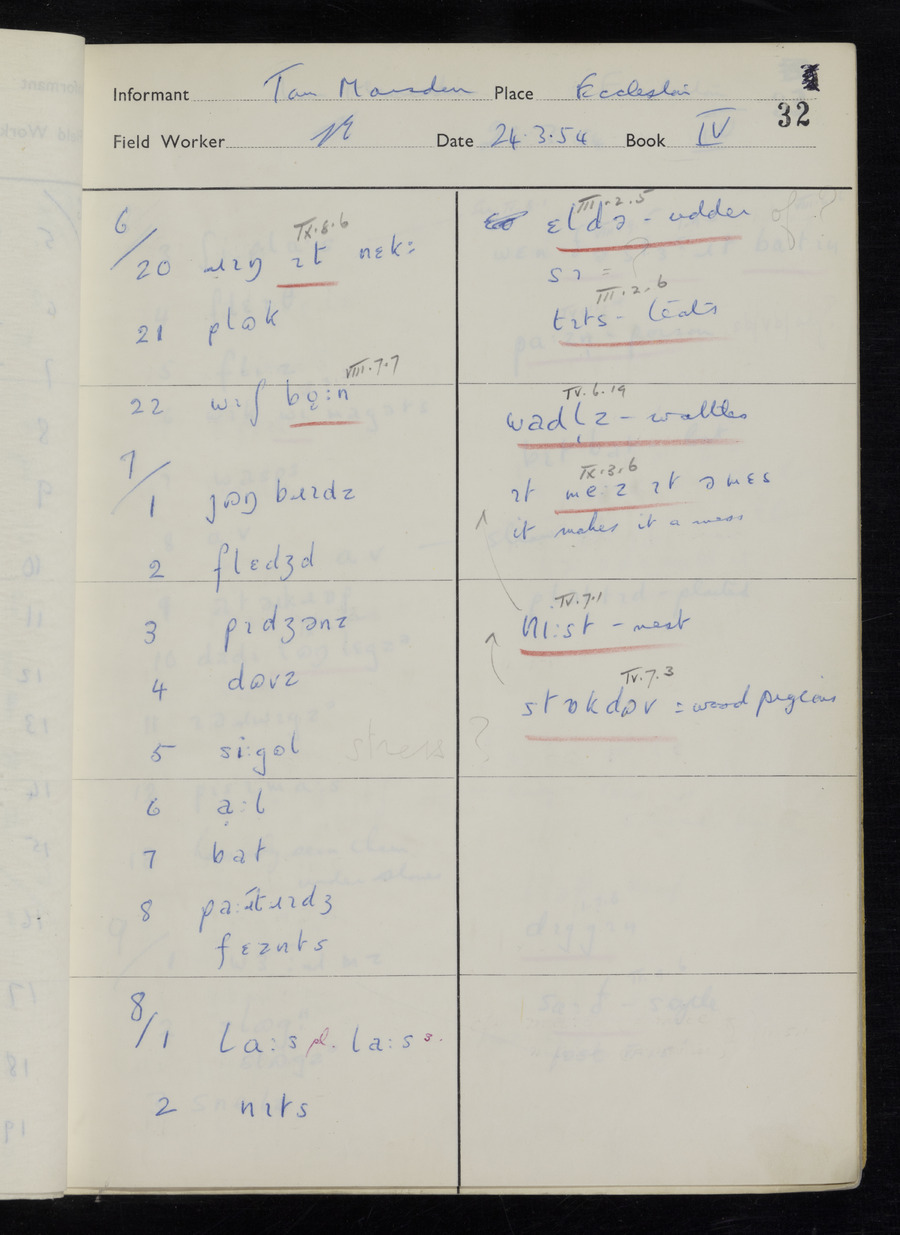 Informant Tom Marsden Place Eccleston
32
Field Worker Date 24.3.54 Book IV
6/
IX.8.6
20 ɹɪŋ ɪt nɛk:
21 plɒk
VIII.7.7
22 wɪʃ bǫ:n
7/
1 jɒŋ bɪɹdz
2 flɛdʒd
3 pɪdʒənz
4 dɒvz
5 si:gɒl stress ?
6 ạ:l
7 bat
8 pa:tɹɪdʒ
fɛznts
8/
1 la:s pl. la:s s.
2 nɪts
III.2.5
ɛldə - udder of ?
sɪ = ?
III.2.6
tɪts - teats
IV.6.19
wadlz - wattles
IX.3.6
ɪt me:z ɪt ə mɛs
it makes it a mess
IV.7.1
nɪ:st - nest
IV.7.3
stɒkdɒv = wood pigeons